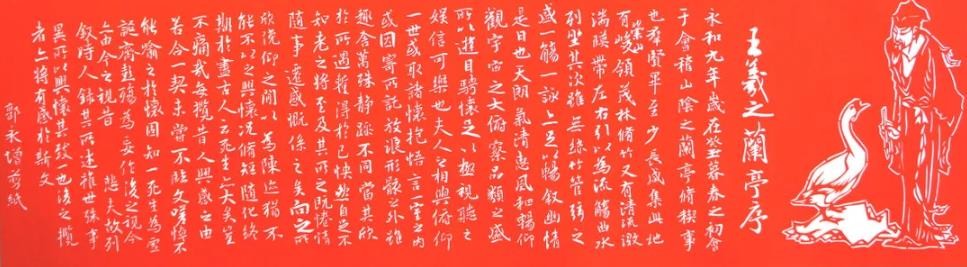 王羲之蘭亭序
永和九年歲在癸丑暮春之初會
于會稽山陰之蘭亭脩稧事
也羣賢畢至少長咸集此地
有崇山峻領茂林脩竹又有清流激
湍暎帶左右引以為流觴曲水
列坐其次雖無絲竹管弦之
盛一觴一詠亦足以暢叙幽情
是日也天朗氣清惠風和暢仰
觀宇宙之大俯察品類之盛
所以遊目騁懷足以極視聽之
娛信可樂也夫人之相與俯仰
一世或取諸懷抱悟言一室之內
或因寄所託放浪形骸之外雖
趣舍萬殊靜躁不同當其欣
於所遇蹔得於己快然自足不
知老之將至及其所之既惓情
隨事遷感慨係之矣向之所
欣俛仰之閒以為陳迹猶不
能不以之興懷況脩短隨化終
期於盡古人云死生亦大矣豈
不痛哉每攬昔人興感之由
若合一契未嘗不臨文嗟悼不
能喻之於懷固知一死生為虛
誕齊彭殤為妄作後之視今
亦由今之視昔 悲夫故列
叙時人錄其所述雖世殊事
異所以興懷其致一也後之攬
者亦將有感於斯文
郭永增剪紙